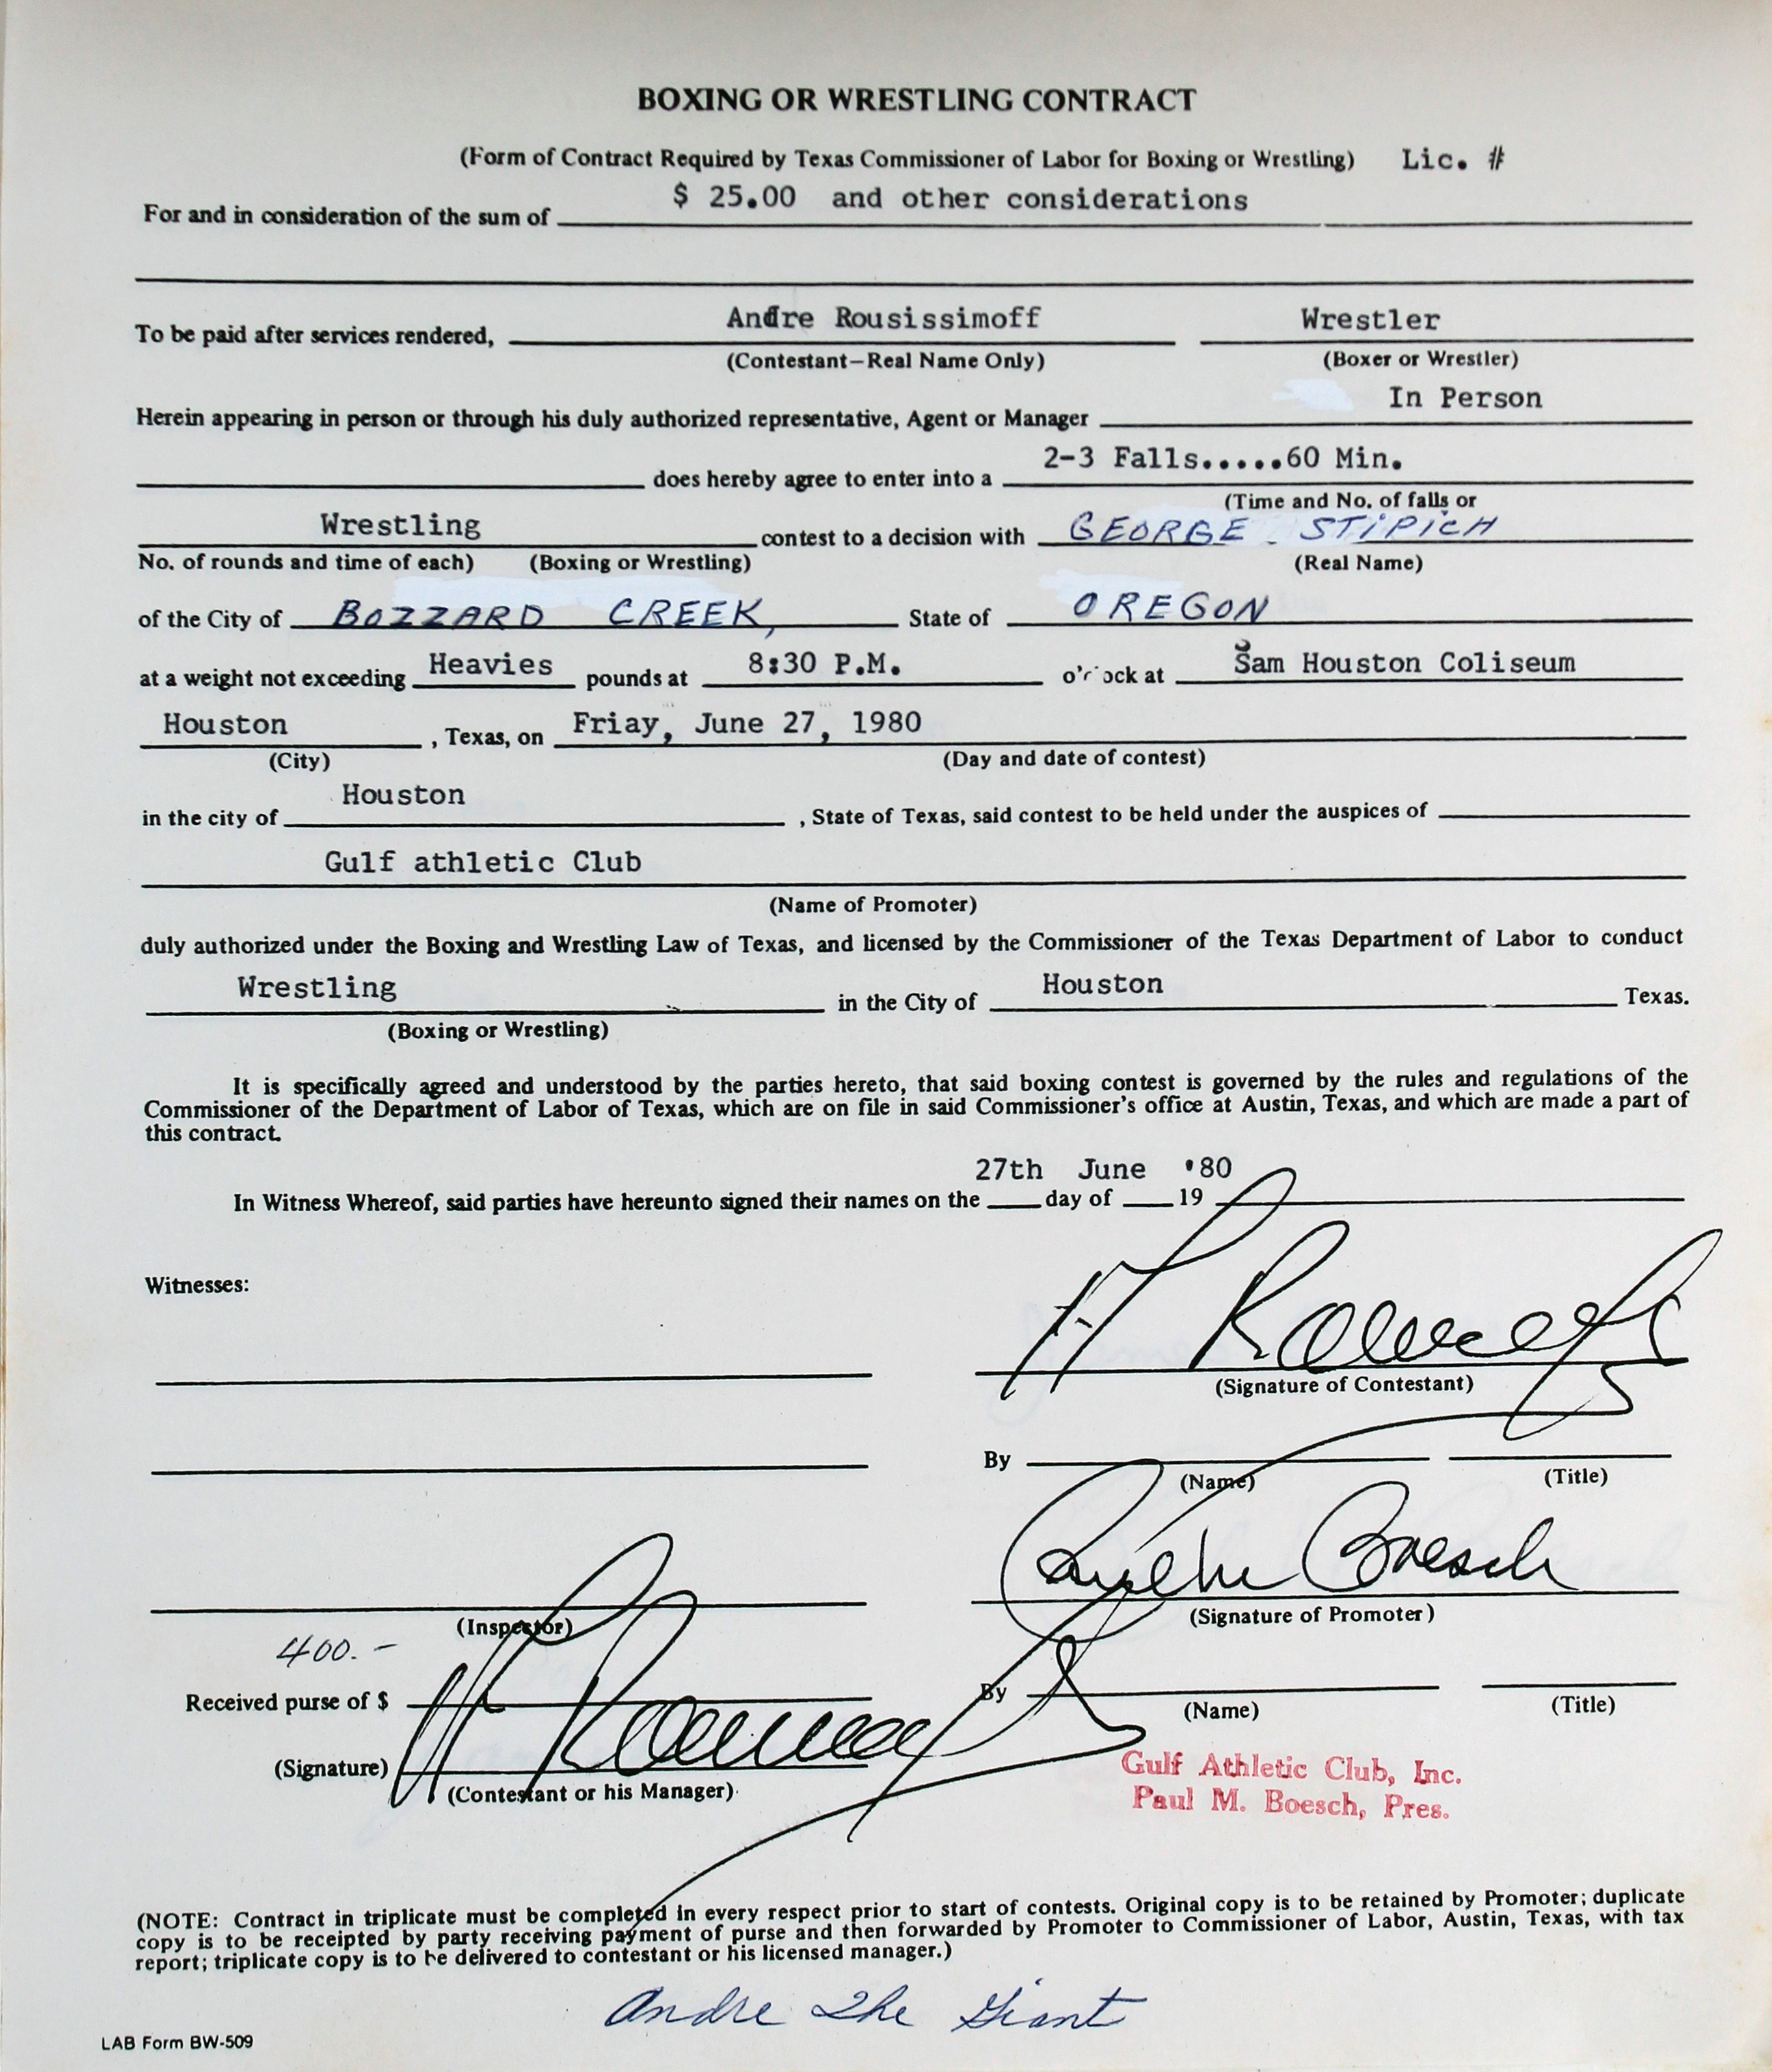 BOXING OR WRESTLING CONTRACT
(Form of Contract Required by Texas Commissioner of Labor for Boxing or Wrestling) Lic. #
For and in consideration of the sum of $ 25.00 and other considerations
To be paid after services rendered, Andre Rousissimoff Wrestler
(Contestant—Real Name Only) (Boxer or Wrestler)
Herein appearing in person or through his duly authorized representative, Agent or Manager In Person
does hereby agree to enter into a 2-3 Falls.....60 Min.
(Time and No. of falls or
Wrestling contest to a decision with GEORGE STIPICH
No. of rounds and time of each) (Boxing or Wrestling) (Real Name)
of the City of BOZZARD CREEK, State of OREGON
at a weight not exceeding Heavies pounds at 8:30 P.M. o'clock at Sam Houston Coliseum
Houston , Texas, on Friay, June 27, 1980
(City) (Day and date of contest)
in the city of Houston , State of Texas, said contest to be held under the auspices of
Gulf athletic Club
(Name of Promoter)
duly authorized under the Boxing and Wrestling Law of Texas, and licensed by the Commissioner of the Texas Department of Labor to conduct
Wrestling in the City of Houston Texas.
(Boxing or Wrestling)
It is specifically agreed and understood by the parties hereto, that said boxing contest is governed by the rules and regulations of the
Commissioner of the Department of Labor of Texas, which are on file in said Commissioner's office at Austin, Texas, and which are made a part of
this contract.
27th June '80
In Witness Whereof, said parties have hereunto signed their names on the day of 19
Witnesses:
(Signature of Contestant)
By
(Name) (Title)
Boesch
(Inspector) (Signature of Promoter)
400.-
Received purse of $ By
(Name) (Title)
(Signature)
(Contestant or his Manager)
Gulf Athletic Club, Inc.
Paul M. Boesch, Pres.
(NOTE: Contract in triplicate must be completed in every respect prior to start of contests. Original copy is to be retained by Promoter; duplicate
copy is to be receipted by party receiving payment of purse and then forwarded by Promoter to Commissioner of Labor, Austin, Texas, with tax
report; triplicate copy is to be delivered to contestant or his licensed manager.)
Andre The Giant
LAB Form BW-509